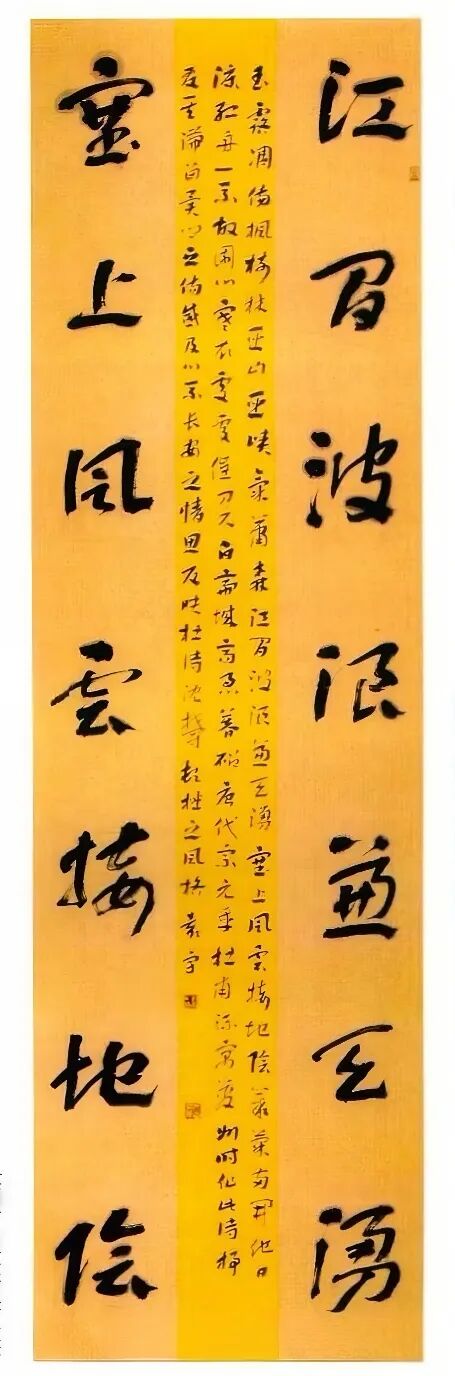 江間波浪兼天湧
玉露凋傷楓樹林巫山巫峽氣蕭森江間波浪兼天湧塞上風雲接地陰叢菊兩開他日
淚孤舟一系故園心寒衣處處催刀尺白帝城高急暮砧唐代宗元年杜甫流寓夔州時作此詩抒
發其滯留異鄉之傷感及心系長安之情思反映杜詩沈鬱頓挫之風格
塞上風雲接地陰